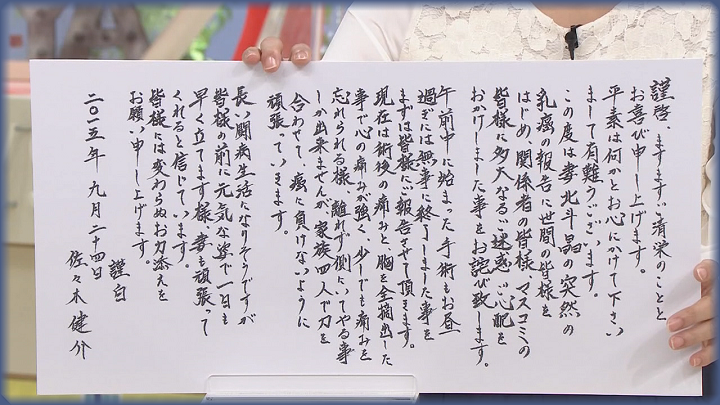 謹啓 ますますご清栄のことと
お喜び申し上げます。
平素は何かとお心にかけて下さい
まして有難うございます。
この度は妻北斗晶の突然の
乳癌の報告に世間の皆様を
はじめ、関係者の皆様、マスコミの
皆様に多大なるご迷惑、ご心配を
おかけしました事をお詫び致します。
午前中に始まった手術もお昼
過ぎには無事に終了しました事を
まずは皆様にご報告させて頂きます。
現在は術後の痛みと、胸を全摘出した
事で心の痛みが強く、少しでも痛みを
忘れられる様、離れず側にいてやる事
しか出来ませんが、家族四人で力を
合わせて、癌に負けないように
頑張っていきます。
長い闘病生活になりそうですが
皆様の前に元気な姿で一日も
早く立てます様、妻も頑張って
くれると信じています。
皆様には変わらぬお力添えを
お願い申し上げます。
謹白
二〇一五年 九月二十四日
佐々木健介